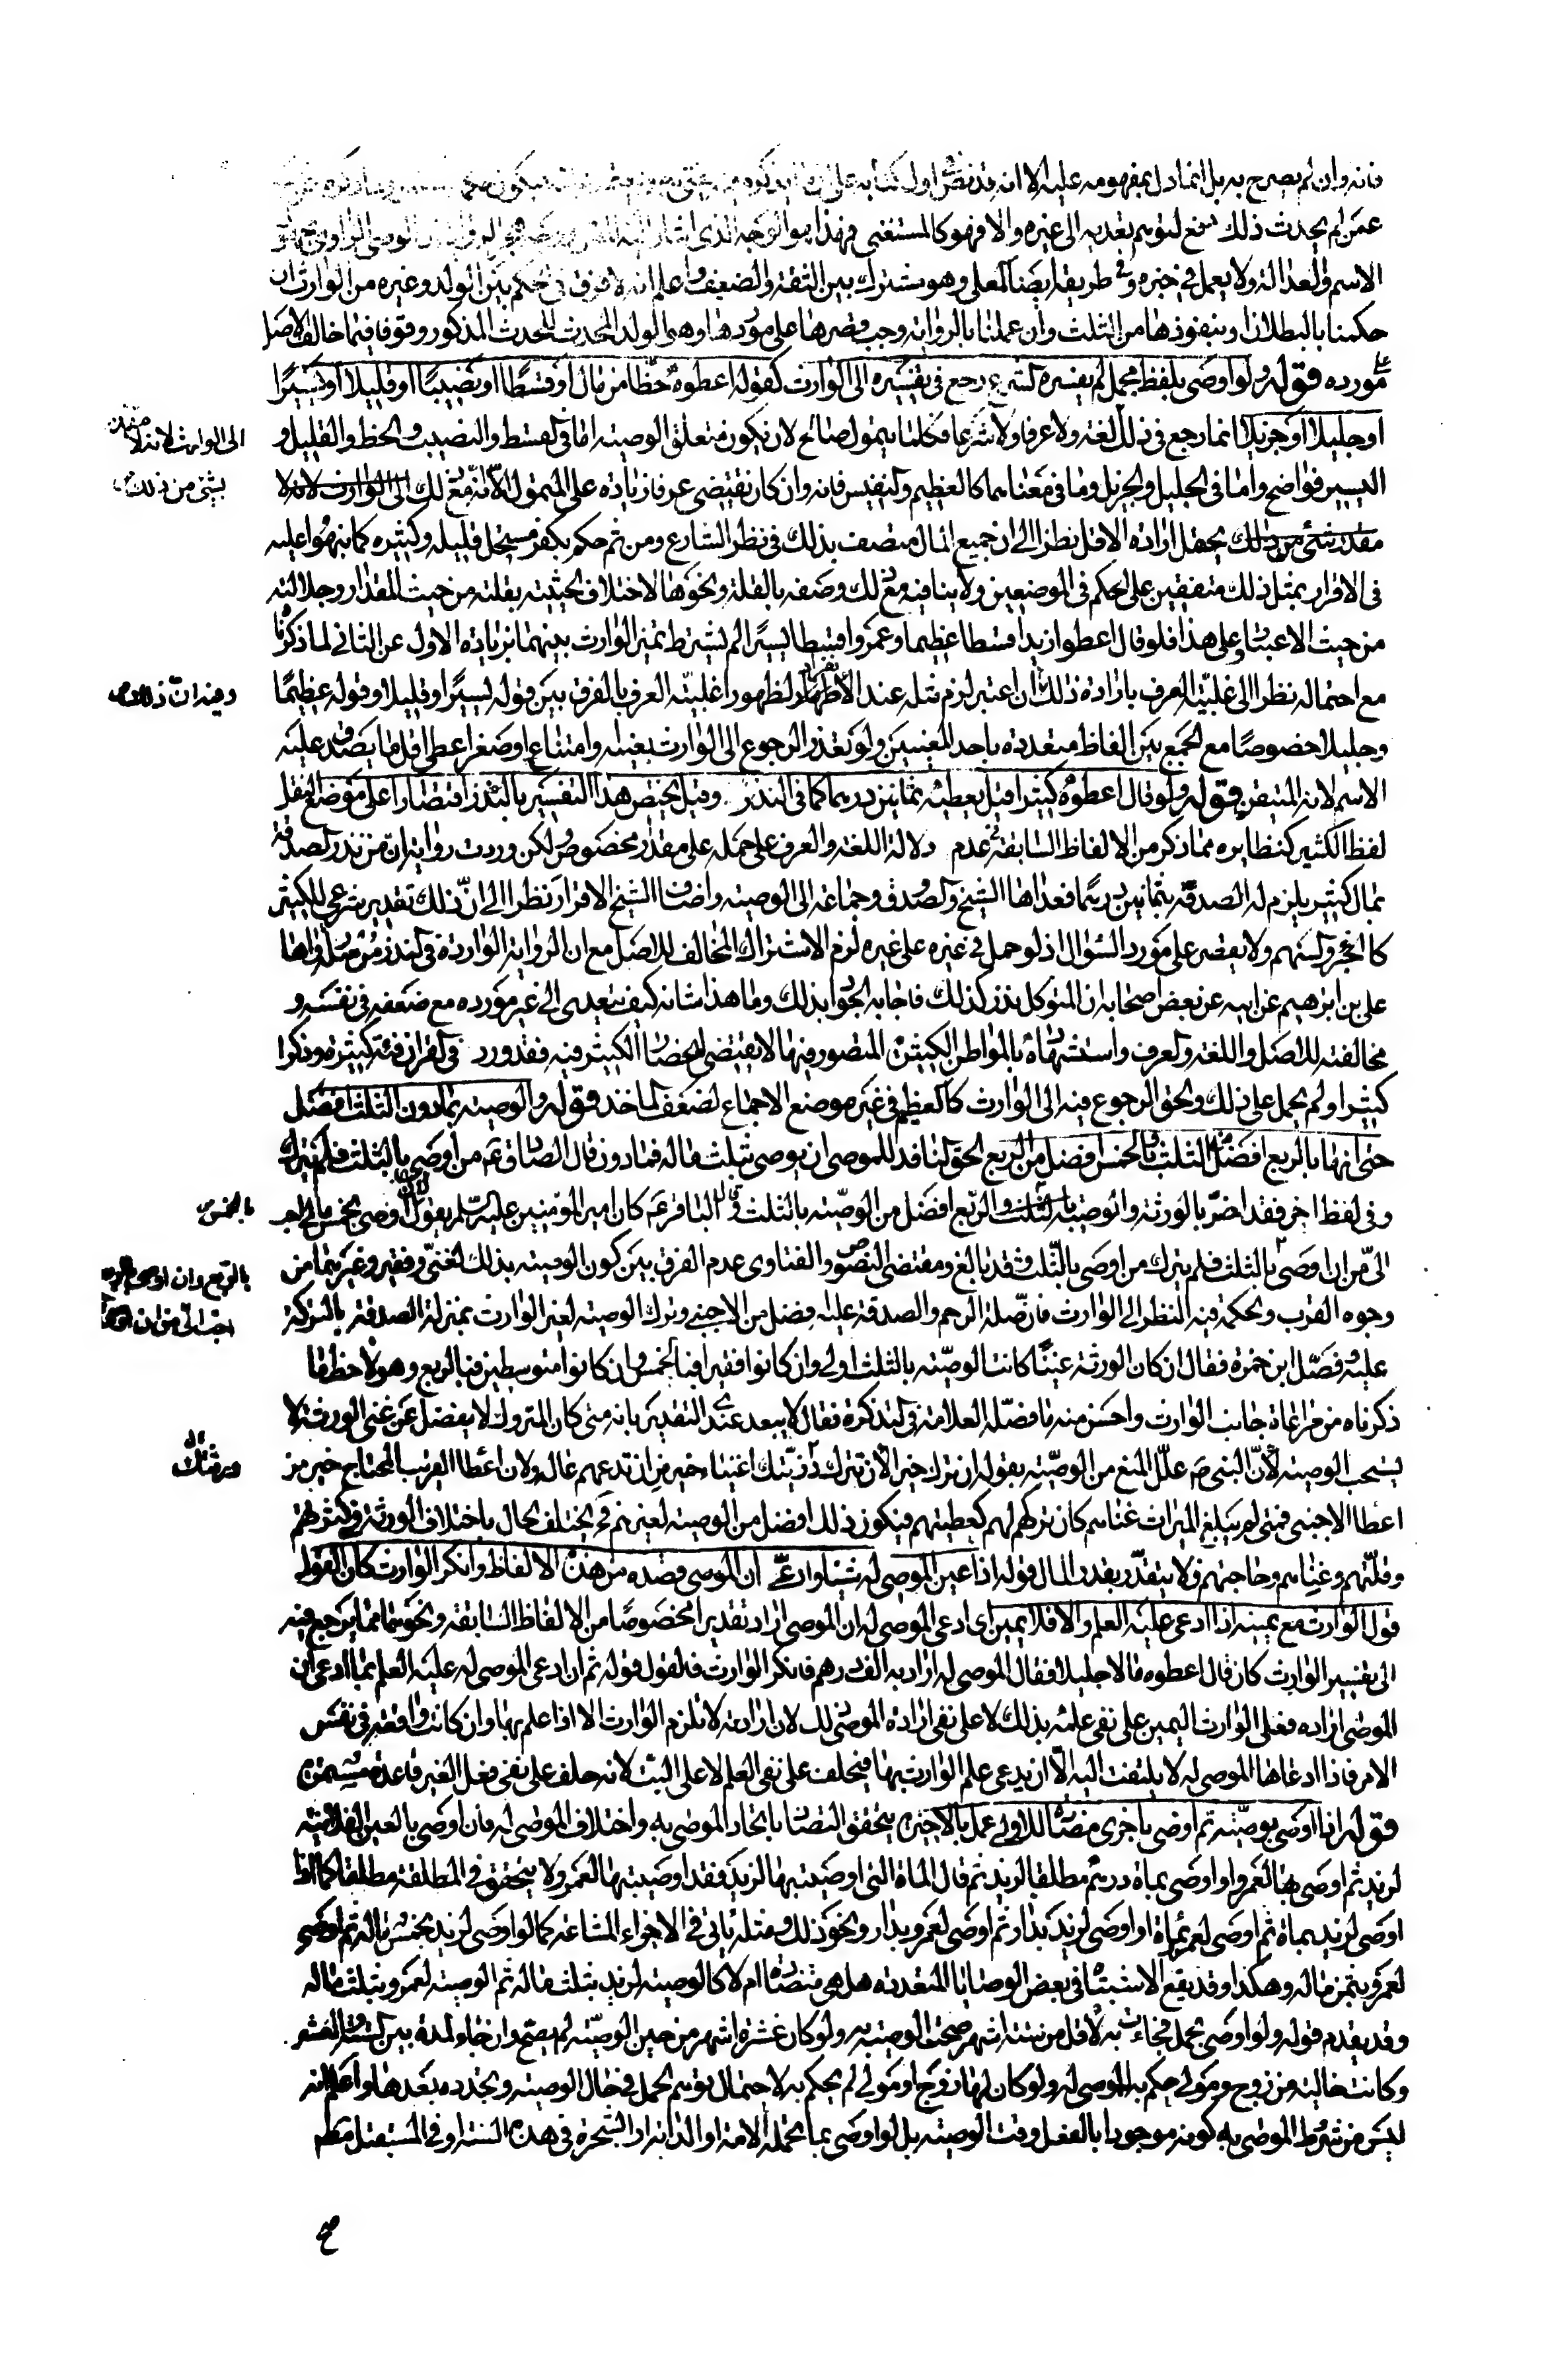 فانه وان لم يصرح به بل انما دل بمفهومه عليه الا انه قد نص اول كتابه على
عمن لم يحدث ذلك دفع لتوهم تعديه الى غيره والا فهو كالمستغنى فهذا هو الوجه الذى اشار اليه
الاسم والعدالة ولا يعمل فى خبره وفى طريقه ايضا المعلى وهو مشترك بين الثقة والضعيف واعلم انه لا فرق فى الحكم بين الولد وغيره من الوارث ان
حكمنا بالبطلان او بنفوذها من الثلث وان عملنا بالرواية وجب قصرها على موردها وهو الولد المحدث للحدث المذكور وقوفا فيما خالف الاصل
على مورده قوله ولو اوصى بلفظ مجمل لم يفسره الشرع رجع فى تفسيره الى الوارث كقوله اعطوه حظا من مالى او قسطا او نصيبا او قليلا او يسيرا
او جليلا او جزيلا انما رجع فى ذلك لغة ولا عرفا ولا شرعا فكلما يتمول صالح لان يكون متعلق الوصية اما فى القسط والنصيب والحظ والقليل و
اليسير فواضح واما فى الجليل والجزيل وما فى معناهما كالعظيم والنفيس فانه وان كان تقتضى عرفا زيادة على المتمول الا انه مع ذلك الى الوارث لانه لا
مقدر بشئ من ذلك يحتمل ارادة الاقل نظرا الى ان جميع المال متصف بذلك فى نظر الشارع ومن ثم حكم بكفر مستحل قليله وكثيره كما نبهوا عليه
فى الاقرار بمثل ذلك متفقين على الحكم فى الموضعين ولا ينافيه مع ذلك وصفه بالقلة ونحوها لاختلاف الحيثية بقلته من حيث المقدار وجلالته
من حيث الاعتبار وعلى هذا فلو قال اعطوا زيدا قسطا عظيما وعمروا قسطا يسيرا لم يشترط تميز الوارث بينهما بزيادة الاول عن الثانى لما ذكرنا
مع احتماله نظرا الى غلبية العرف بارادة ذلك ان اعتبر لزم مثله عند الانفراد لظهور اغلبية العرف بالفرق بين قوله يسيرا وقليلا وقوله عظيما
وجليلا خصوصا مع الجمع بين الفاظ متعددة باحد المعنيين ولو تعذر الرجوع الى الوارث بغيبة وامتناع او صغر اعطى اقل ما يصدق عليه
الاسم لانه المتيقن قوله ولو قال اعطوه كثيرا قيل يعطى ثمانين درهما كما فى النذر وقيل يختص هذا التفسير بالنذر اقتصارا على موضع النقل
لفظ الكثير كنظايره مما ذكر من الالفاظ السابقة فى عدم دلالة اللغة والعرف على حمله على مقدار مخصوص لكن وردت رواية ان من نذر الصدقة
بمال كثير يلزم له الصدقة بثمانين درهما فعداها الشيخ والصدوق وجماعة الى الوصية واضاف الشيخ الاقرار نظرا الى ان ذلك تقدير شرعى للكثير
كالجزء والسهم ولا يقصر على مورد السؤال اذ لو حمل فى غيره على غيره لزم الاشتراك المخالف للاصل مع ان الرواية الواردة فى النذر مرسلة رواها
على بن ابرهيم عن ابيه عن بعض اصحابه ان المتوكل نذر كذلك فاجابه الجواد بذلك وما هذا شانه كيف يتعدى الى غير مورده مع ضعفه فى نفسه و
مخالفته للاصل واللغة والعرف واستشهاده بالمواطن الكثيرة المنصور فيها لا يقتضى انحصار الكثير فيه فقد ورد فى القران فئة كثيرة وذكرا
كثيرا ولم يحمل على ذلك والحق الرجوع فيه الى الوارث كالعظيم فى غير موضع الاجماع لضعف المأخذ قوله والوصية بما دون الثلث افضل
حتى انها بالربع افضل من الثلث وبالخمس افضل من الربع الحق انا قد للموصى ان يوصى بثلث ماله فما دون قال الصادق ع من اوصى بالثلث فلم يترك
وفى لفظ اخر فقد اضر بالورثة والوصية بالخمس والربع افضل من الوصية بالثلث وقال الباقر ع كان امير المؤمنين عليه السلم يقول لان اوصى بخمس مالى احب
الى من ان اوصى بالثلث فلم يترك من اوصى بالثلث وقد بالغ ومقتضى النصوص والفتاوى عدم الفرق بين كون الوصية بذلك لغنى وفقير وغيرهما من
وجوه القرب والحكمة فيه النظر الى الوارث فان صلة الرحم والصدقة عليه افضل من الاجنبى وترك الوصية لغير الوارث بمنزلة الصدقة بالتركة
عليه وفصل ابن حمزة فقال ان كان الورثة غنيا كانت الوصية بالثلث اولى وان كانوا فقراء فبالخمس وان كانوا متوسطين فبالربع وهو لاحظ ما
ذكرناه من مراعاة جانب الوارث واحسن منه ما فصله العلامة فى التذكرة فقال لا يبعد عندى التقدير بانه متى كان المتروك لا يفضل عن غنى الورثة لا
يستحب الوصية لان النبى ص علل المنع من الوصية بقوله ان ترك خيرا لان تترك ذريتك اغنياء خير من ان تدعهم عالة ولان اعطاء القريب المحتاج خير من
اعطاء الاجنبى فمتى لم يبلغ الميراث غناهم كان تركهم لهم كعطيتهم فيكون ذلك افضل من الوصية لغيرهم فح يختلف الحال باختلاف الورثة فى كثرتهم
وقلتهم وغناهم وحاجتهم ولا يتقدر بقدر المال قوله اذا عين الموصى له شيئا وادعى ان الموصى قصده من هذه الالفاظ وانكر الوارث كان القول
قول الوارث مع يمينه اذا ادعى عليه العلم والا فلا يمين اى ادعى الموصى له ان الموصى اراد تقديرا مخصوصا من الالفاظ السابقة ونحوها مما يرجع فيه
الى تفسير الوارث كان قال اعطوه مالا جليلا فقال الموصى له اراد به الف درهم فانكر الوارث فالقول قوله ثم ان ادعى الموصى له عليه العلم بما ادعى ان
الموصى اراده فعلى الوارث اليمين على نفى علمه بذلك لا على نفى ارادة الموصى لذلك لان ارادته لا تلزم الوارث الا اذا علم بها وان كانت واقعة فى نفس
الامر فاذا ادعاها الموصى له لا يلتفت اليه الا ان يدعى علم الوارث بها فيحلف على نفى العلم لا على البت لانه حلف على نفى فعل الغير قاعدة مستمرة
قوله اذا اوصى بوصية ثم اوصى باخرى مضادة للاولى عمل بالاخيرة يتحقق التضاد باتحاد الموصى به واختلاف الموصى له فان اوصى بالعين الفلانية
لزيد ثم اوصى بها لعمرو او اوصى بماة درهم مطلقا لزيد ثم قال الماة التى اوصيت بها لزيد فقد اوصيت بها لعمرو ولا يتحقق فى المطلقة مطلقا كما اذا
اوصى لزيد بماة ثم اوصى لعمرو بماة او اوصى لزيد بدار ثم اوصى لعمرو بدار ونحو ذلك ومثله ياتى فى الاجزاء المشاعة كما لو اوصى لزيد بخمس ماله ثم اوصى
لعمرو بثمن ماله وهكذا وقد يقع الاشتباه فى بعض الوصايا المتعددة هل هى متضادة ام لا كالوصية لزيد بثلث ماله ثم الوصية لعمرو بثلث ماله
وقد تقدم قوله ولو اوصى بحمل فجاءت به لاقل من ستة اشهر صحت الوصية به ولو كان عشرة اشهر من حين الوصية لم يصح وان جاء لمدة بين الستة والعشر
وكانت خالية من زوج ومولى حكم به للموصى له ولو كان لها زوج او مولى لم يحكم به لاحتمال توهم الحمل فى حال الوصية وتجدده بعدها واعلم انه
ليس من شرط الموصى به كونه موجودا بالفعل وقت الوصية بل لو اوصى بما تحمله الامة او الدابة او الشجرة فى هذه السنة او فى المستقبل مطم
الى الوارث لانه لا مقدر
بشئ من ذلك ص
وفيه ان ذلك ص
بالخمس ص
بالربع وان اوصى بالربع
احب الى من ان اوصى
ورثتك